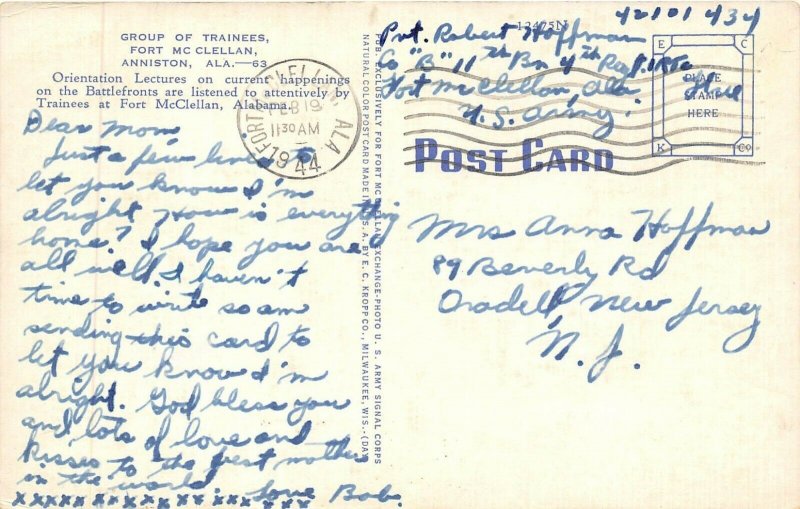 GROUP OF TRAINEES,
FORT MC CLELLAN,
ANNISTON, ALA.—63
Orientation Lectures on current happenings
on the Battlefronts are listened to attentively by
Trainees at Fort McClellan, Alabama.
Dear Mom,
Just a few lines to
let you know I'm
alright How is everything
home? I hope you are
all well I haven't
time to write so am
sending this card to
let you know I'm
alright. God bless you
and lots of love and
kisses to the best mother
in the world. Love Bob.
xxxxxxxxxxxxxxxxxxxx
FORT MC CLELLAN, ALA.
FEB 19
11 30 AM
1944
PUB. EXCLUSIVELY FOR FORT MC CLELLAN EXCHANGE-PHOTO U. S. ARMY SIGNAL CORPS
NATURAL COLOR POST CARD MADE IN U. S. A. BY E. C. KROPP CO., MILWAUKEE, WIS.-(DAY)
12475N
42101434
Pvt. Robert Hoffman
Co "B" 11th Bn 4th Reg. IRTC
Fort McClellan, Ala.
U.S. Army.
Free
E C
PLACE
STAMP
HERE
K Co
POST CARD
Mrs Anna Hoffman
89 Beverly Rd
Oradell, New Jersey
N. J.